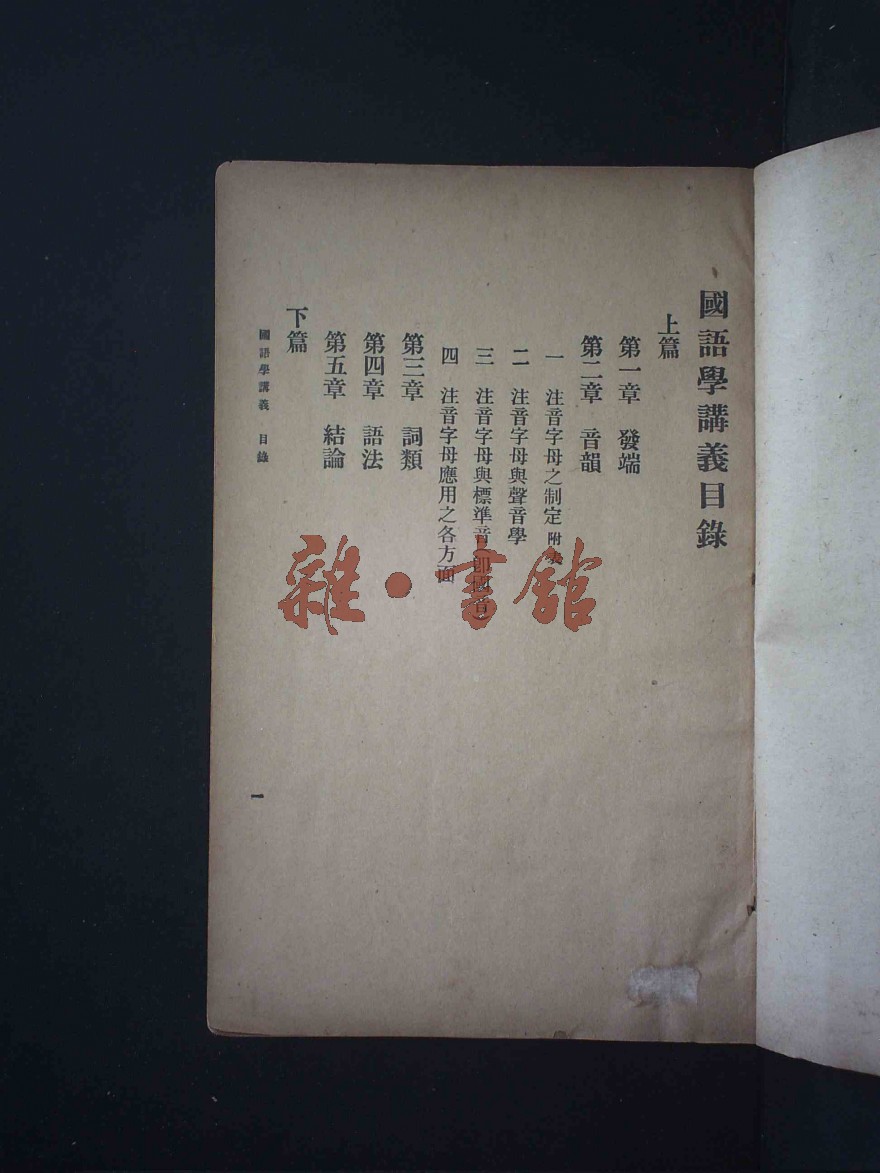 國語學講義目錄
上篇
第一章　發端
第二章　音韻
一　注音字母之制定 附表
二　注音字母與聲音學
三　注音字母與標準音（卽國音）
四　注音字母應用之各方面
第三章　詞類
第四章　語法
第五章　結論
下篇
國語學講義　目錄
一
雜·書館